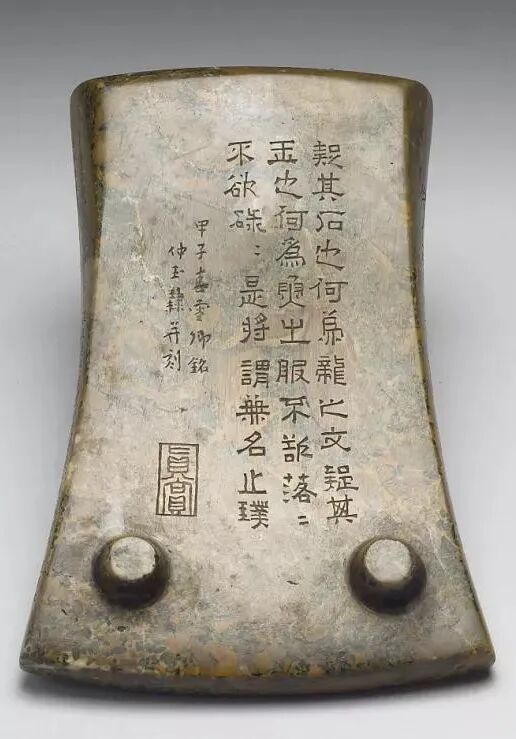 疑其石也何為龍之文疑其
玉也何為之服不欲落〻
不欲碌〻是將謂無名之璞
甲子雲卿銘
仲玉隸并刻
真賞